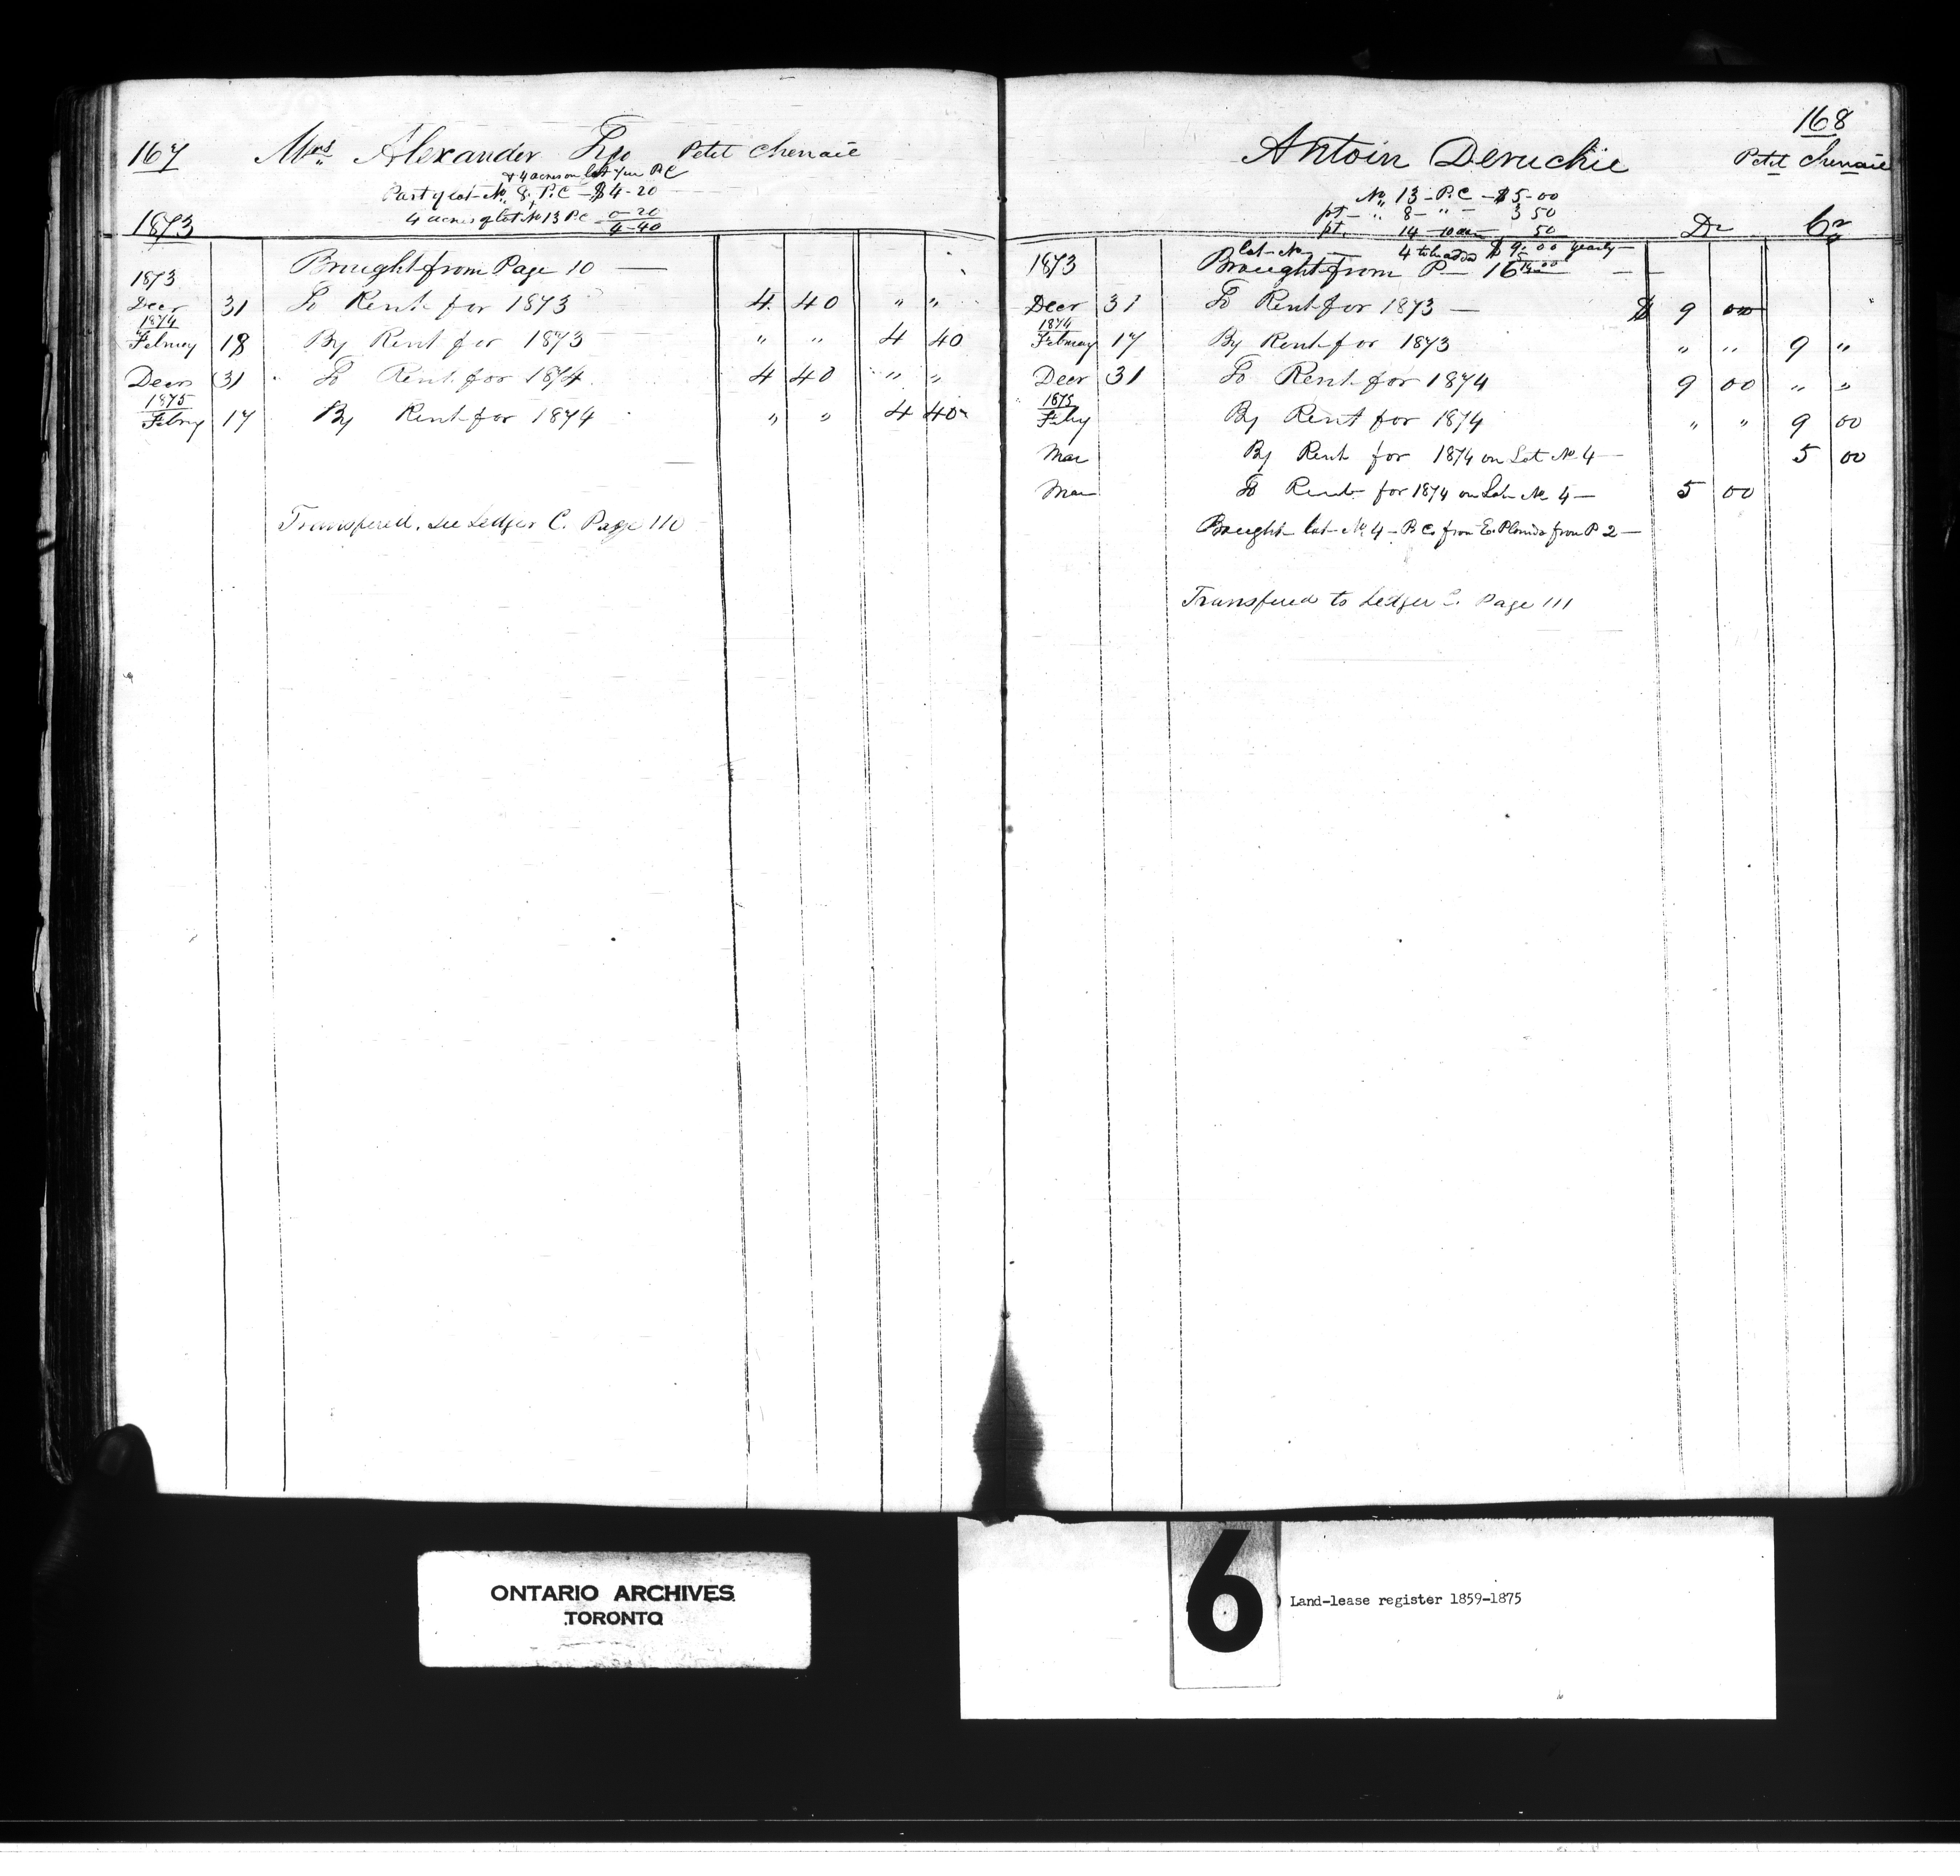 167 Mrs Alexander Petit Chenaie
& 4 acres on lot P.C
Part of Lot No. 8, P.C - $4-20
4 acres of Lot No 13 P.C 0-20
4-40
1873
1873 Brought from Page 10 —
Decr 31 To Rent for 1873 4 40 " "
1874
Februey 18 By Rent for 1873 " " 4 40
Decr 31 To Rent for 1874 4 40 " "
1875
Febry 17 By Rent for 1874 " " 4 40
Transfered. see Ledger C. Page 110
168
Antoin Deruchie Petit Chenaie
No 13 - P.C - $5-00
pt - " 8 - " - 3 50
pt. 14 - 10 acr 50
Dr Cr
lot No 4 to be added $9.00 yearly
1873 Brought from P — 16
Decr 31 To Rent for 1873 — $ 9 00
1874
Februay 17 By Rent for 1873 " " 9 "
Decr 31 To Rent for 1874 9 00 " "
1875
Feby By Rent for 1874 " " 9 00
Mar By Rent for 1874 on Lot No. 4 — 5 00
Mar To Rent for 1874 on Lot No 4 — 5 00
Bought lot No. 4 - P.C. from E. from P 2 —
Transfered to Ledger C. Page 111
ONTARIO ARCHIVES
TORONTO
6
Land-lease register 1859-1875